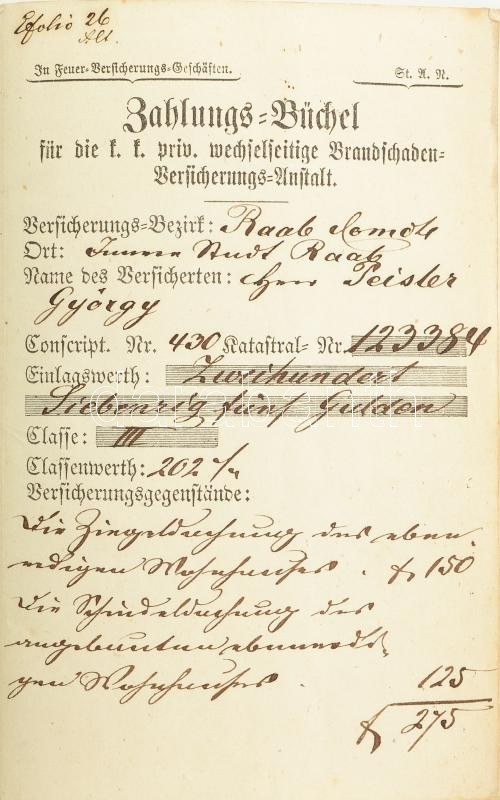 Efolio 26
Alt.
In Feuer-Versicherungs-Geschäften.
St. A. N.
Zahlungs-Büchel
für die k. k. priv. wechselseitige Brandschaden-
Versicherungs-Anstalt.
Versicherungs-Bezirk: Raab Comote
Ort: Innere Stadt Raab
Name des Versicherten: Herr Peisler
György
Conscript. Nr. 430 Katastral- Nr. 123384
Einlagswerth: Zweihundert
Siebenzig fünf Gulden
Classe: III
Classenwerth: 202
Versicherungsgegenstände:
Die Ziegeldachung des eben-
erdigen Wohnhauses . f 150
Die Schindeldachung des
angebauten ebenerdi-
gen Wohnhauses . 125
f 275